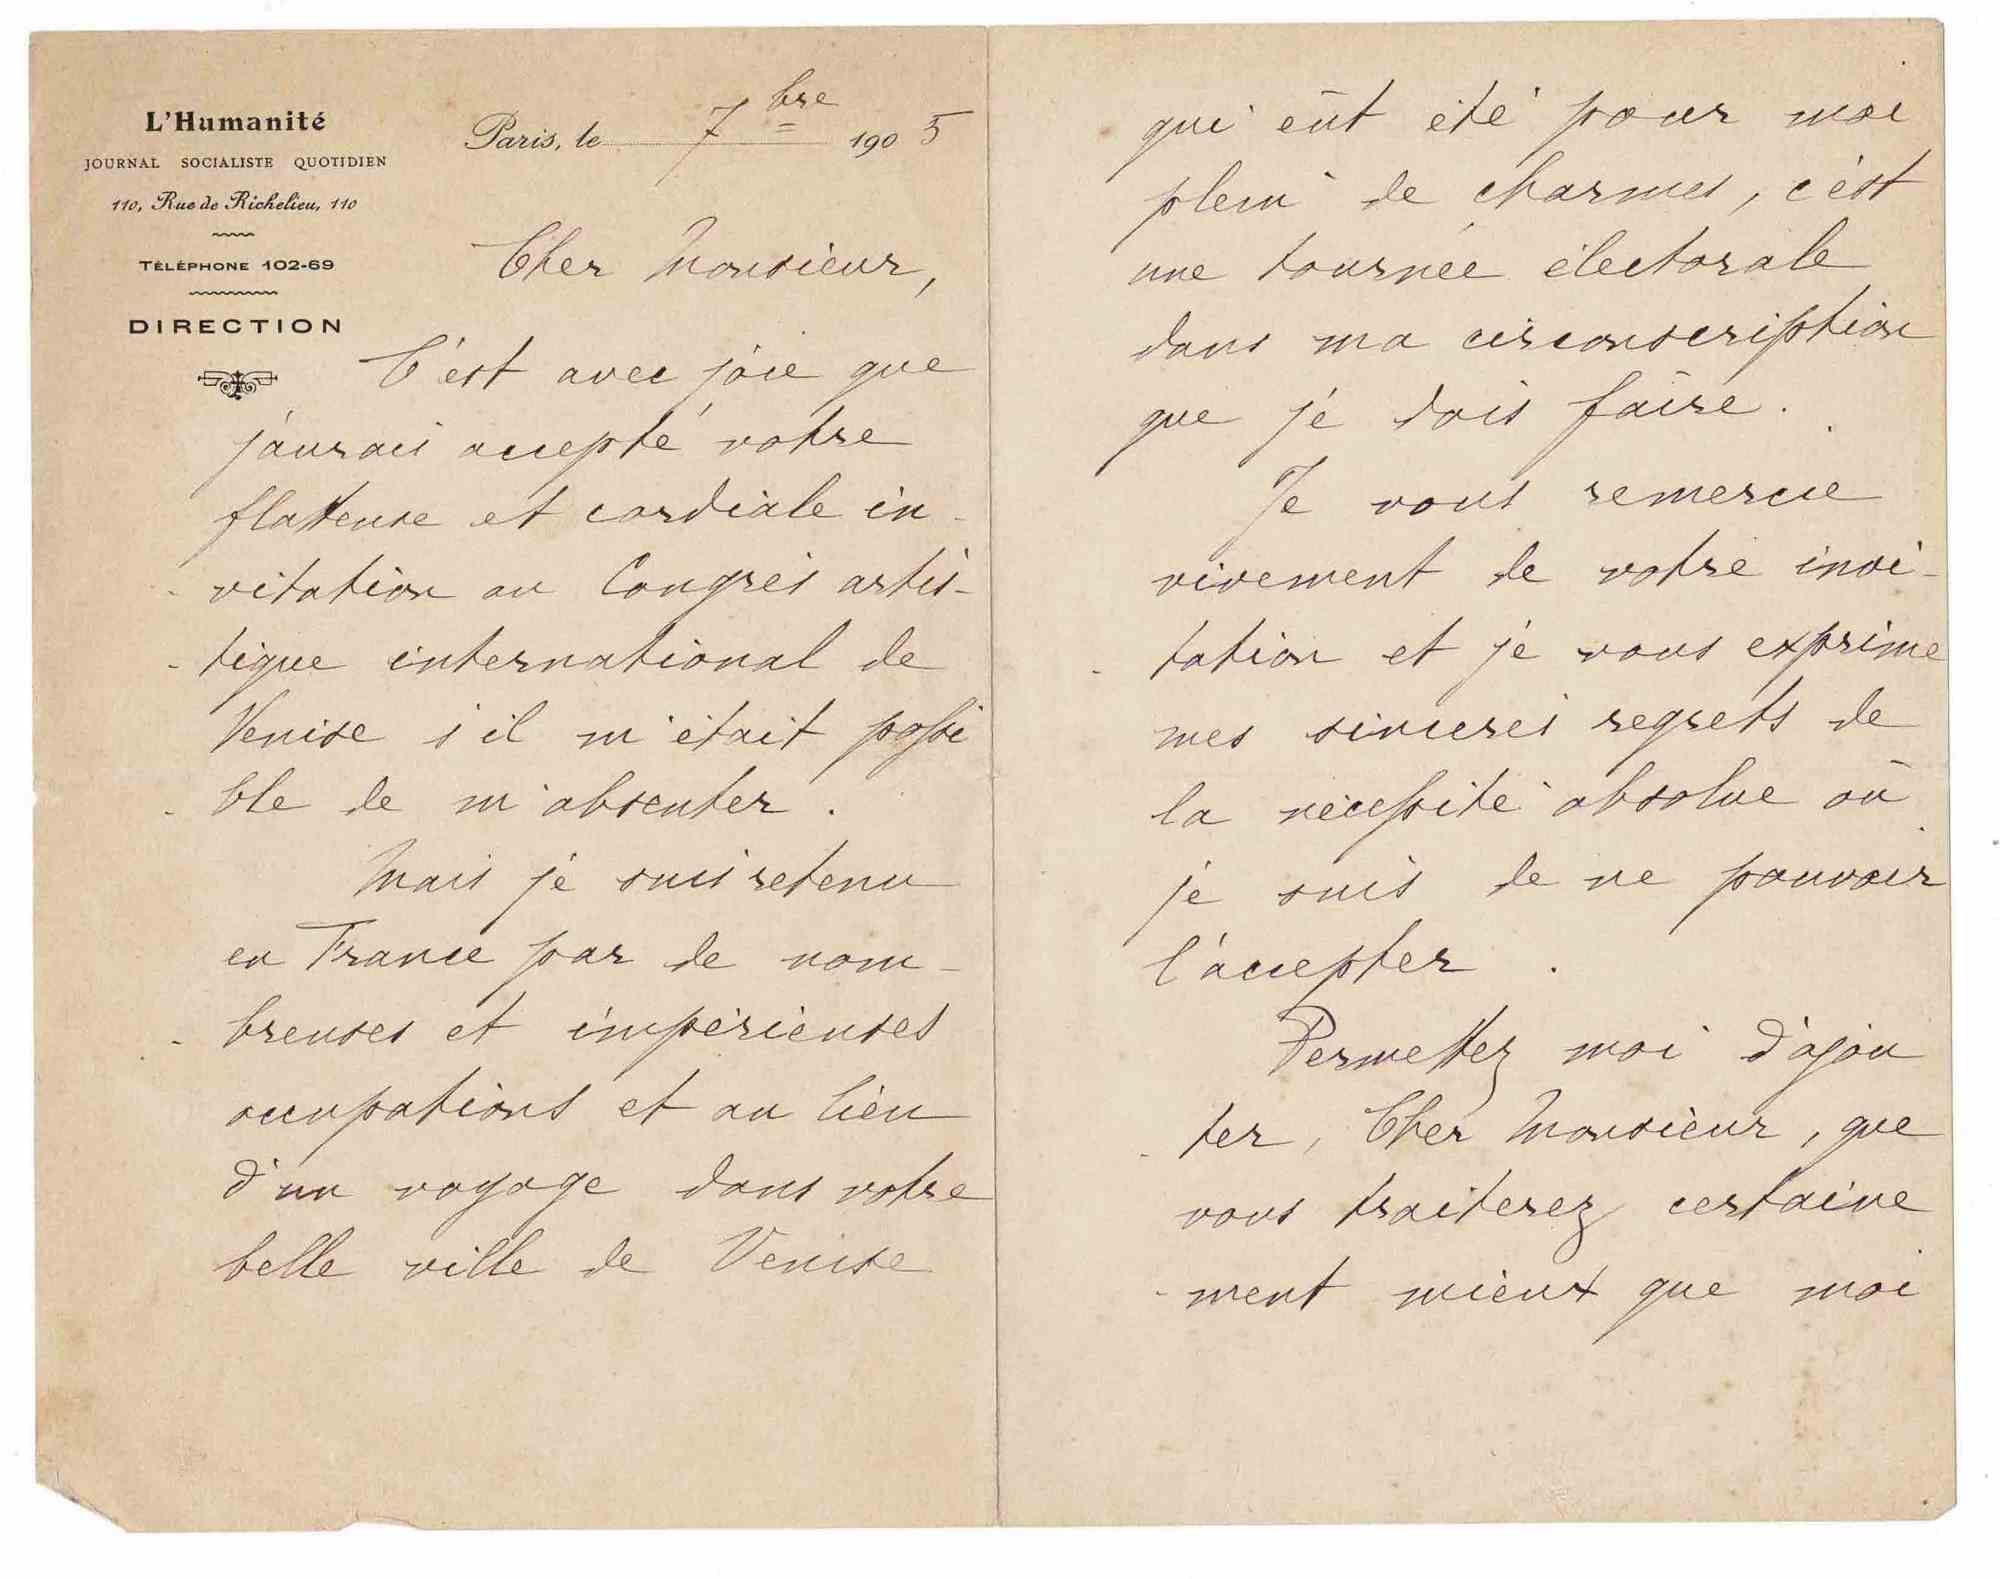 L'Humanité
JOURNAL SOCIALISTE QUOTIDIEN
110, Rue de Richelieu, 110
TÉLÉPHONE 102-69
DIRECTION
Paris, le 7bre 1905
Cher Monsieur,
C'est avec joie que
j'aurais accepté votre
flatteuse et cordiale in-
vitation au Congrès artis-
-tique international de
Venise s'il m'était possi
ble de m'absenter.
Mais je suis retenu
en France par de nom-
-breuses et impérieuses
occupations et au lieu
d'un voyage dans votre
belle ville de Venise
qui eût été pour moi
plein de charmes, c'est
une tournée électorale
dans ma circonscription
que je dois faire.
Je vous remercie
vivement de votre invi-
-tation et je vous exprime
mes sincères regrets de
la nécessité absolue où
je suis de ne pouvoir
l'accepter.
Permettez moi d'ajou
-ter, Cher Monsieur, que
vous traiterez certaine
-ment mieux que moi